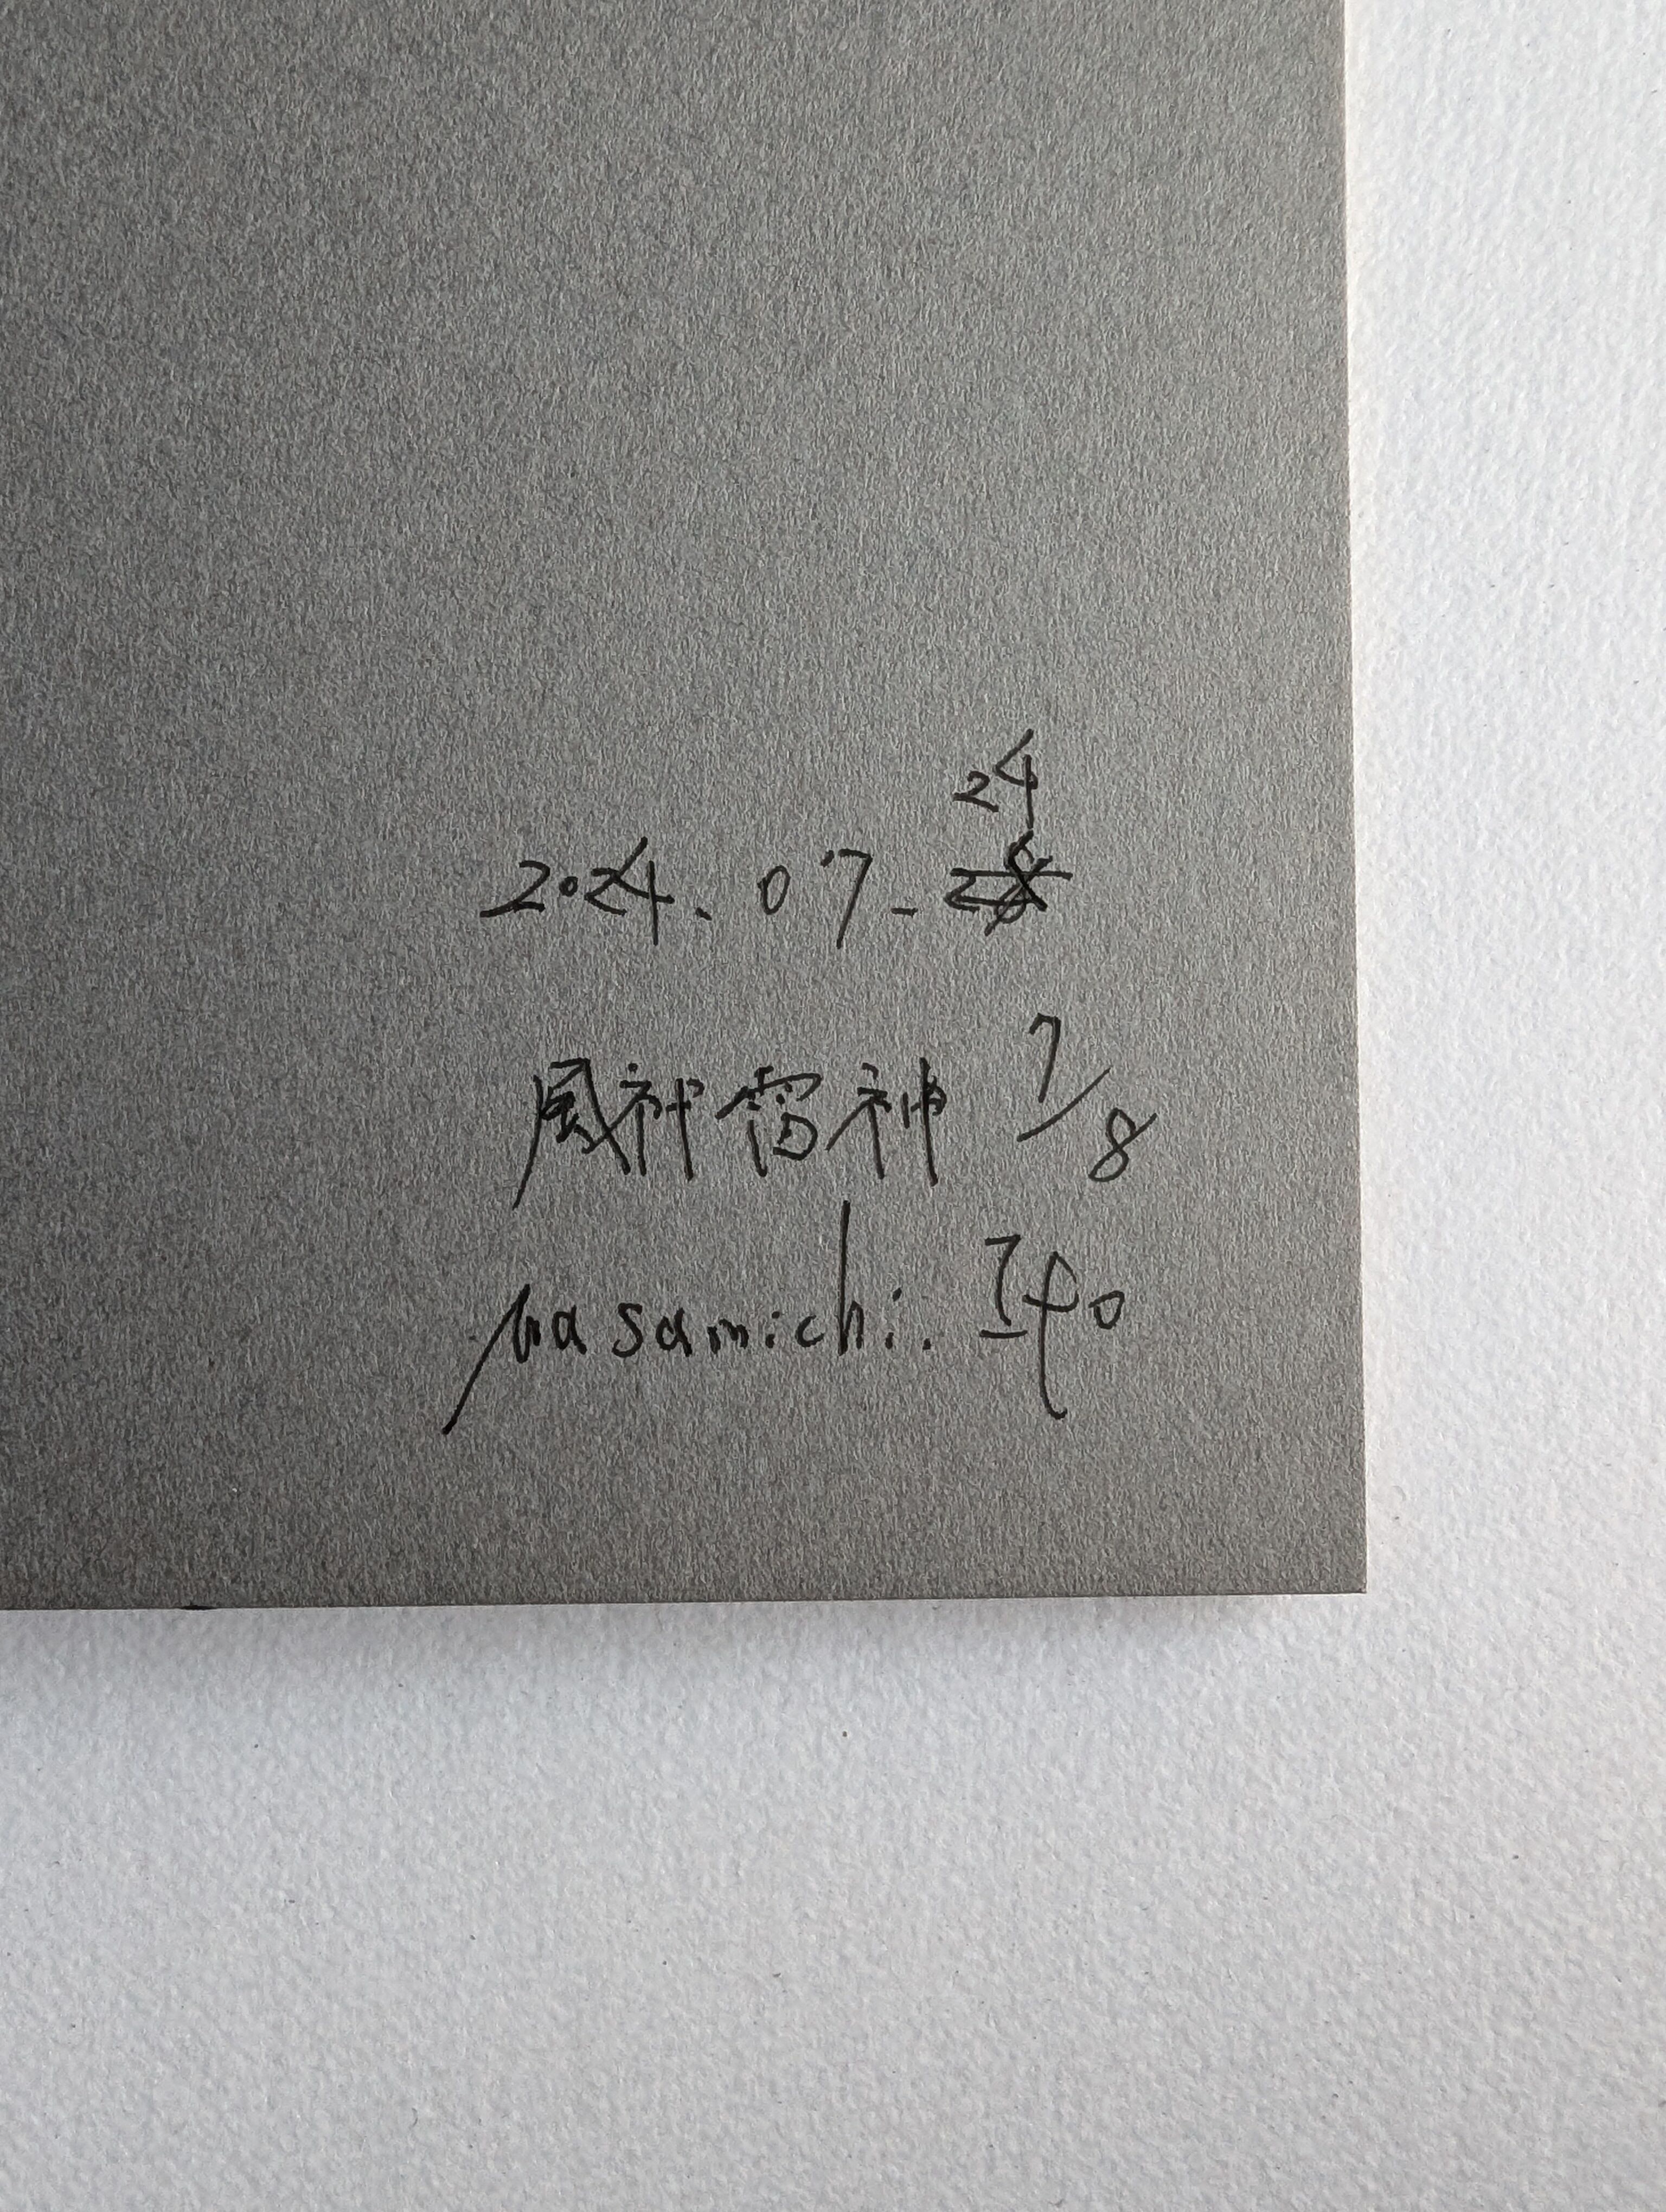 24
2024.07-
風神雷神 7/8
Masamichi. Ito